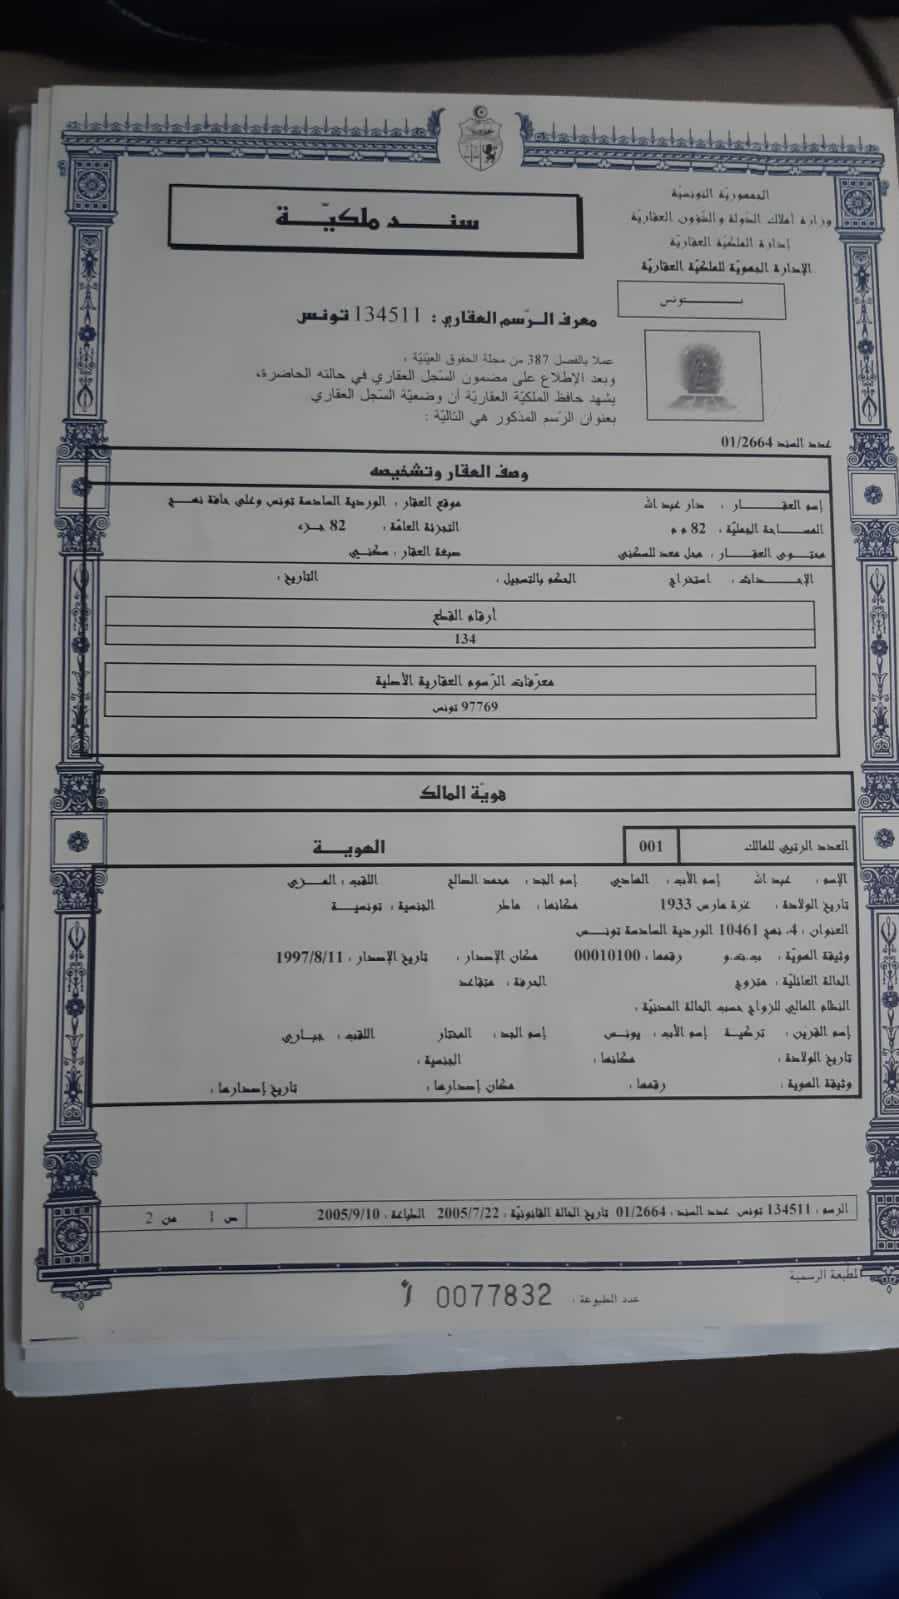 الجمهوريّة التونسيّة
وزارة أملاك الدّولة والشّؤون العقاريّة
إدارة الملكيّة العقاريّة
الإدارة الجهويّة للملكيّة العقاريّة
تونس
سند ملكيّة
معرف الرّسم العقاري : 134511 تونس
عملا بالفصل 387 من مجلة الحقوق العينيّة ،
وبعد الإطلاع على مضمون السّجل العقاري في حالته الحاضرة،
يشهد حافظ الملكيّة العقاريّة أن وضعيّة السّجل العقاري
بعنوان الرّسم المذكور هي التاليّة :
عدد السند 01/2664
وصف العقار وتشخيصه
إسم العقار ، دار عبد الله موقع العقار ، الوردية السادسة تونس وعلى حافة نهج
المساحة الجمليّة ، 82 م م التجزئة العامّة ، 82 جزء
محتوى العقار ، محل معد للسكنى صبغة العقار ، سكني
الإحداث ، استخراج الحكم بالتسجيل ، التاريخ ،
أرقام القطع
134
معرّفات الرّسوم العقارية الأصلية
97769 تونس
هويّة المالك
العدد الرتبي للمالك 001 الهوية
الإسم ، عبد الله إسم الأب ، الهادي إسم الجد ، محمد الصالح اللقب ،
تاريخ الولادة ، غرة مارس 1933 مكانها ، ماطر الجنسية ، تونسية
العنوان ، 4، نهج 10461 الوردية السادسة تونس
وثيقة الهويّة ، ب.ت.و رقمها ، 00010100 مكان الإصدار ، تاريخ الإصدار ، 1997/8/11
الحالة العائليّة ، متزوج الحرفة ، متقاعد
النظام المالي للزواج حسب الحالة المدنيّة ،
إسم القرين ، تركية إسم الأب ، يونس إسم الجد ، المختار اللقب ، جباري
تاريخ الولادة ، مكانها ، الجنسية ،
وثيقة الهوية ، رقمها ، مكان إصدارها ، تاريخ إصدارها ،
الرسم ، 134511 تونس عدد السند ، 01/2664 تاريخ الحالة القانونيّة ، 2005/7/22 الطباعة ، 2005/9/10 ص 1 من 2
المطبعة الرسمية
عدد المطبوعة ، 0077832 أ